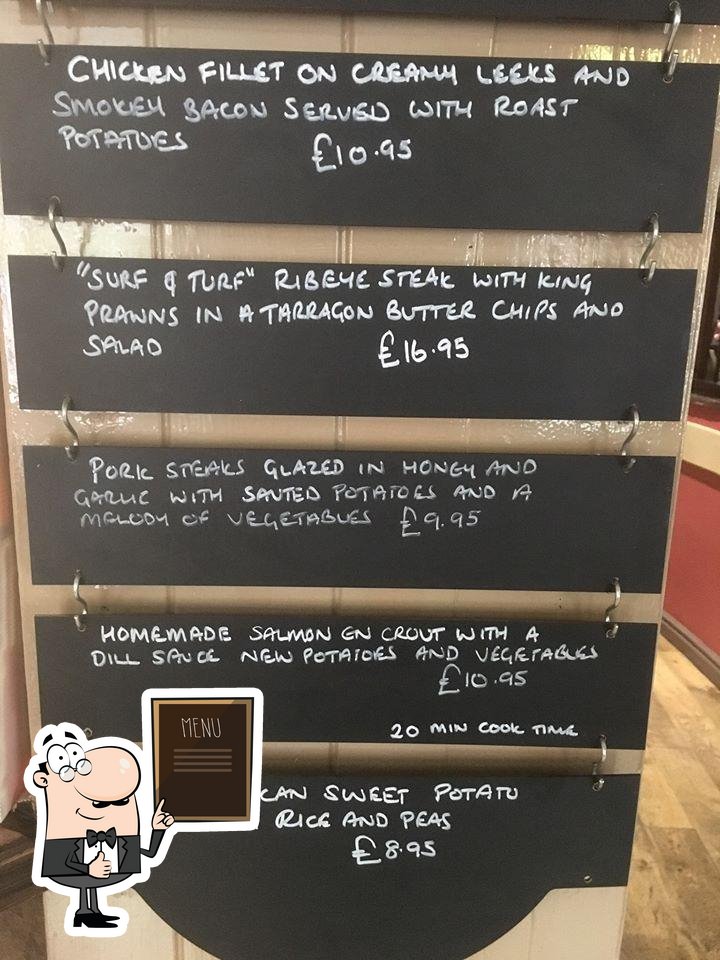 CHICKEN FILLET ON CREAMY LEEKS AND
SMOKEY BACON SERVED WITH ROAST
POTATOES £10.95
"SURF & TURF" RIBEYE STEAK WITH KING
PRAWNS IN A TARRAGON BUTTER CHIPS AND
SALAD £16.95
PORK STEAKS GLAZED IN HONEY AND
GARLIC WITH SAUTED POTATOES AND A
MELODY OF VEGETABLES £9.95
HOMEMADE SALMON EN CROUT WITH A
DILL SAUCE NEW POTATOES AND VEGETABLES
£10.95
20 MIN COOK TIME
MENU
CAN SWEET POTATO
RICE AND PEAS
£8.95